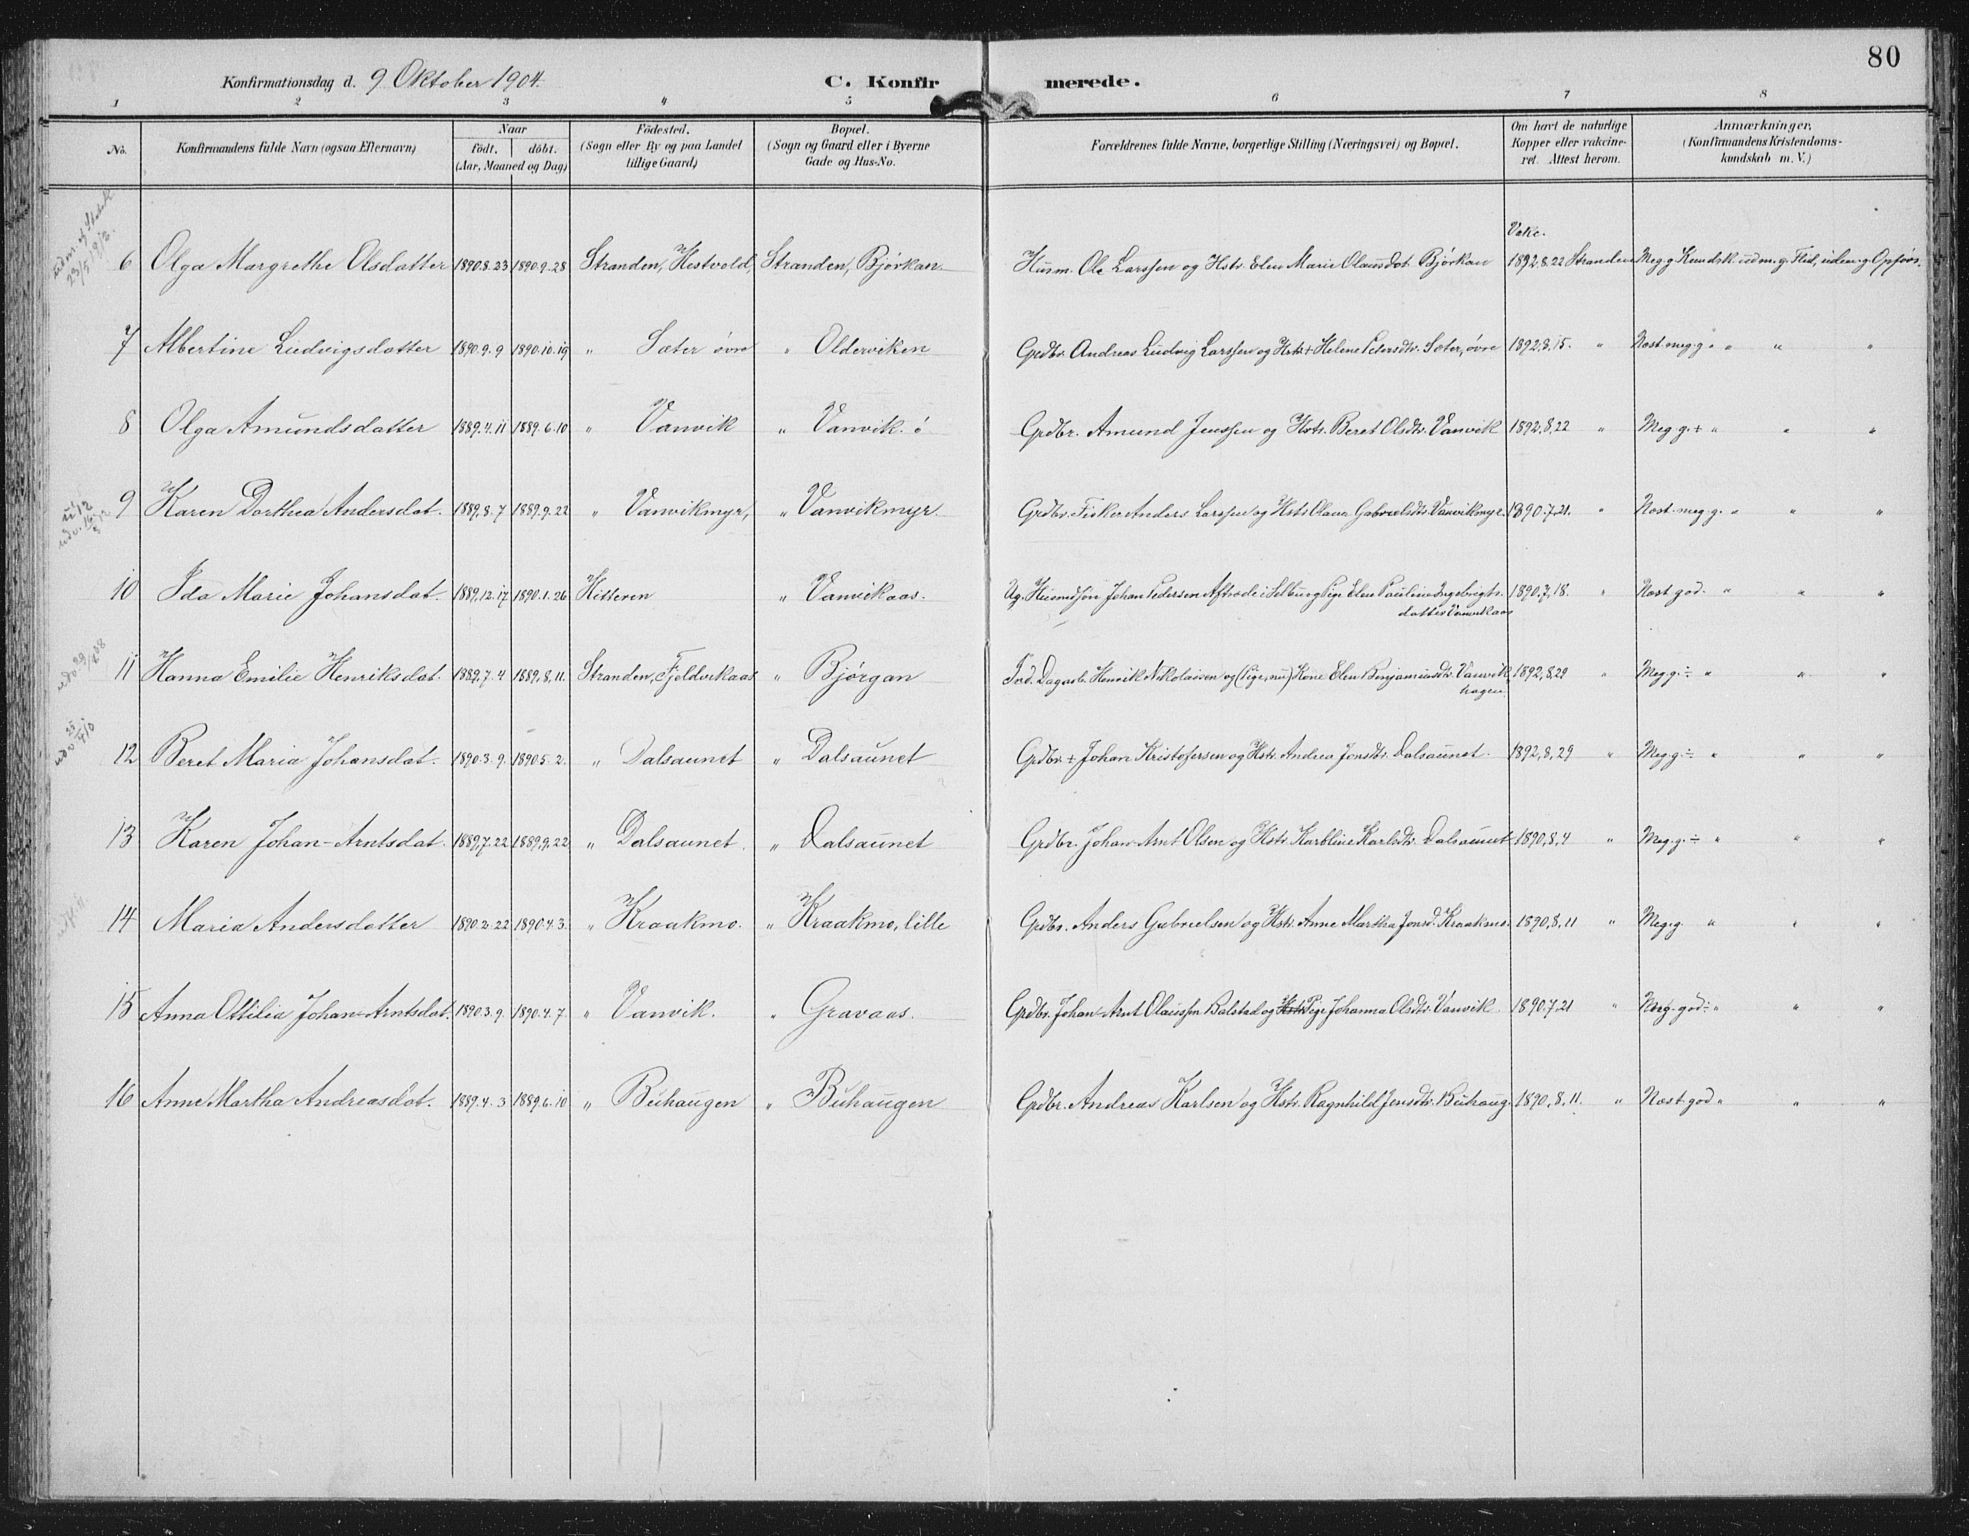 80
Konfirmationsdag d. 9 Oktober 1904. C. Konfirmerede.
1 2 3 4 5 6 7 8
No. Konfirmandens fulde Navn (ogsaa Efternavn) Naar født. døbt. (Aar, Maaned og Dag) Fødested. (Sogn eller By og paa Landet tillige Gaard) Bopæl. (Sogn og Gaard eller i Byerne Gade og Hus-No. Forældrenes fulde Navne, borgerlige Stilling (Næringsvei) og Bopæl. Om havt de naturlige Kopper eller vakcineret. Attest herom. Anmærkninger. (Konfirmandens Kristendomskundskab m. V.)
Vakc.
6 Olga Margrethe Olsdatter 1890.8.23 1890.9.28 Stranden, Hestvold, Stranden, Bjørkan. Husm. Ole Larssen og Hstr. Elen Marie Olausdot. Bjørkan 1892.8.22 Stranden Meg. g. Kundsk. udm. g. Flid, udm. g. Opførs.
7 Albertine Ludvigsdatter 1890.9.9 1890.10.19 " Sæter øvre " Olderviken Grdbr. Andreas Ludvig Larssen og Hstr + Helene Petersdtr. Sæter, øvre 1892.8.15. " Næst. meg. g. " " " "
8 Olga Amundsdatter 1889.4.11 1889.6.10 " Vanvik " Vanvik. ö Grdbr. Amund Jenssen og Hstr. Beret Olsdtr. Vanvik 1892.8.22 " Meg. g. + " " "
9 Karen Dorthea Andersdat. 1889.8.7 1889.9.22 " Vanvikmyr, " Vanvikmyr Grdbr. Fisker Anders Larssen og Hstr Olava Gabrielsdtr. Vanvikmyr. 1890.7.21. " Næst. meg. g. " " "
10 Ida Marie Johansdat. 1889.12.17 1890.1.26 Hitteren " Vanvikaas. Ug. Husmdsøn Johan Pedersen Aftrøde i Selbu og Pige Elen Pauline Ingebrigts. 1890.7.18. " Næst god. " " "
datter Vanvikaas
11 Hanna Emilie Henriksdat. 1889.7.4 1889.8.11. Stranden, Fjeldvikaas " Bjørgan Fød. Dagarb. Henrik Nikolaisen og (Pige, nu) Kone Elen Benjaminsdtr. Vanvik 1892.8.29 " Meg. g. ÷ " " "
hagen
12 Beret Maria Johansdat. 1890.3.9. 1890.5.2. " Dalsaunet " Dalsaunet Grdbr. + Johan Kristofersen og Hstr. Andrea Jonsdtr. Dalsaunet. 1892.8.29 " Meg. g. ÷ " " "
13 Karen Johan-Arntsdat. 1889.7.22 1889.9.22 " Dalsaunet. " Dalsaunet Grdbr. Johan Arnt Olsen og Hstr. Karoline Karlsdtr. Dalsaunet 1890.8.4 " Meg. g. ÷ " " "
14 Maria Andersdatter 1890.2.22 1890.4.3. " Kraakmo. " Kraakmo, lille Grdbr. Anders Gabrielsen og Hstr. Anne Martha Jonsd. Kraakmo. 1890.8.11 " Meg. g. " " "
15 Anna Ottilia Johan-Arntsdat. 1890.3.9. 1890.4.7. " Vanvik. " Gravaas. Grdbr. Johan-Arnt Olaussen Balstad og Hstr Pige Johanna Olsdtr. Vanvik 1890.7.21 " Meg. god ÷ " " "
16 Anne Martha Andreasdat. 1889.4.3 1889.6.10 " Buhaugen " Buhaugen Grdbr. Andreas Karlsen og Hstr. Ragnhild Jensdtr. Buhaug. 1890.8.11. " Næst. god " " "